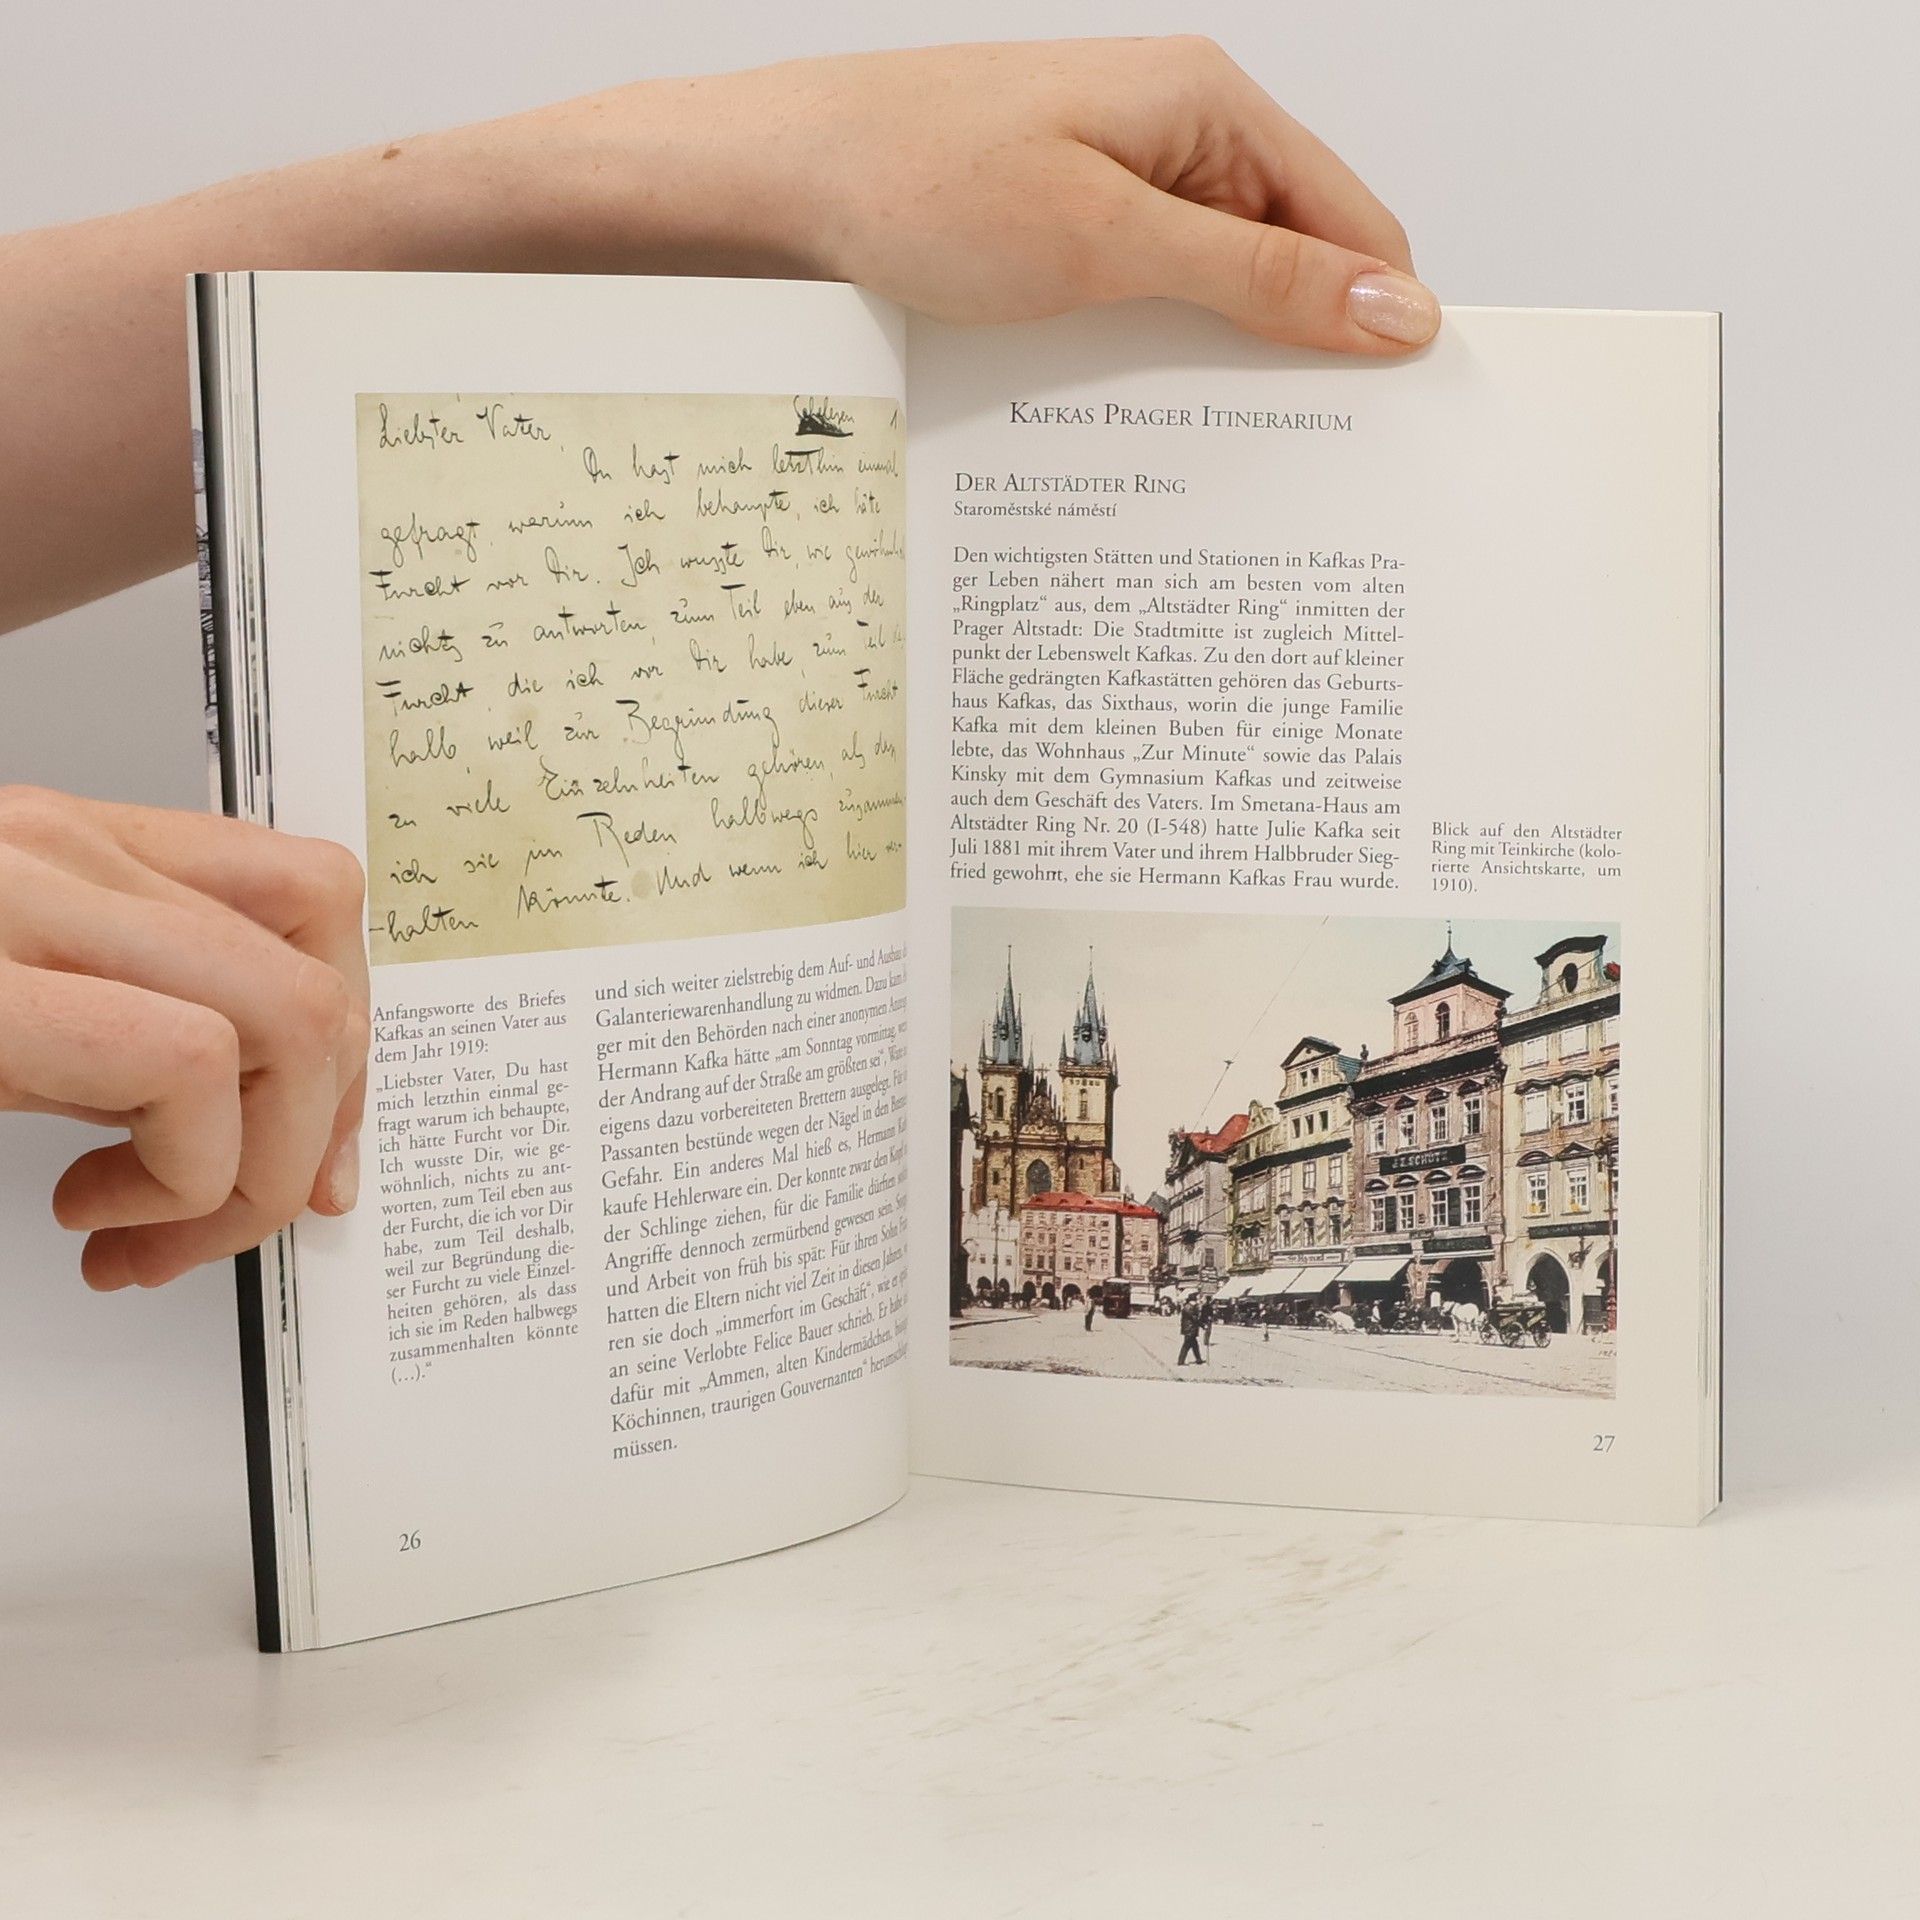 Liebster Vater,
Schelesen 1
Du hast mich letzthin einmal
gefragt, warum ich behaupte, ich hätte
Furcht vor Dir. Ich wusste Dir, wie gewöhnlich,
nichts zu antworten, zum Teil eben aus der
Furcht, die ich vor Dir habe, zum Teil
halb, weil zur Begründung dieser Furcht
zu viele Einzelnheiten gehören, als dass
ich sie im Reden halbwegs zusammen-
-halten könnte. Und wenn ich hier
Anfangsworte des Briefes
Kafkas an seinen Vater aus
dem Jahr 1919:
„Liebster Vater, Du hast
mich letzthin einmal ge-
fragt warum ich behaupte,
ich hätte Furcht vor Dir.
Ich wusste Dir, wie ge-
wöhnlich, nichts zu ant-
worten, zum Teil eben aus
der Furcht, die ich vor Dir
habe, zum Teil deshalb,
weil zur Begründung die-
ser Furcht zu viele Einzel-
heiten gehören, als dass
ich sie im Reden halbwegs
zusammenhalten könnte
(...).“
und sich weiter zielstrebig dem Auf- und Ausbau
Galanteriewarenhandlung zu widmen. Dazu kam
ger mit den Behörden nach einer anonymen
Hermann Kafka hätte „am Sonntag vormittag,
der Andrang auf der Straße am größten sei“,
eigens dazu vorbereiteten Brettern ausgelegt. Für
Passanten bestünde wegen der Nägel in den
Gefahr. Ein anderes Mal hieß es, Hermann
kaufe Hehlerware ein. Der konnte zwar den Kopf
der Schlinge ziehen, für die Familie dürften
Angriffe dennoch zermürbend gewesen sein.
und Arbeit von früh bis spät: Für ihren Sohn
hatten die Eltern nicht viel Zeit in diesen Jahren,
ren sie doch „immerfort im Geschäft“, wie er
an seine Verlobte Felice Bauer schrieb. Er habe
dafür mit „Ammen, alten Kindermädchen,
Köchinnen, traurigen Gouvernanten“
müssen.
26
KAFKAS PRAGER ITINERARIUM
DER ALTSTÄDTER RING
Staroměstské náměstí
Den wichtigsten Stätten und Stationen in Kafkas Pra-
ger Leben nähert man sich am besten vom alten
„Ringplatz“ aus, dem „Altstädter Ring“ inmitten der
Prager Altstadt: Die Stadtmitte ist zugleich Mittel-
punkt der Lebenswelt Kafkas. Zu den dort auf kleiner
Fläche gedrängten Kafkastätten gehören das Geburts-
haus Kafkas, das Sixthaus, worin die junge Familie
Kafka mit dem kleinen Buben für einige Monate
lebte, das Wohnhaus „Zur Minute“ sowie das Palais
Kinsky mit dem Gymnasium Kafkas und zeitweise
auch dem Geschäft des Vaters. Im Smetana-Haus am
Altstädter Ring Nr. 20 (I-548) hatte Julie Kafka seit
Juli 1881 mit ihrem Vater und ihrem Halbbruder Sieg-
fried gewohnt, ehe sie Hermann Kafkas Frau wurde.
Blick auf den Altstädter
Ring mit Teinkirche (kolo-
rierte Ansichtskarte, um
1910).
J.Z.SCHÜTZ
27